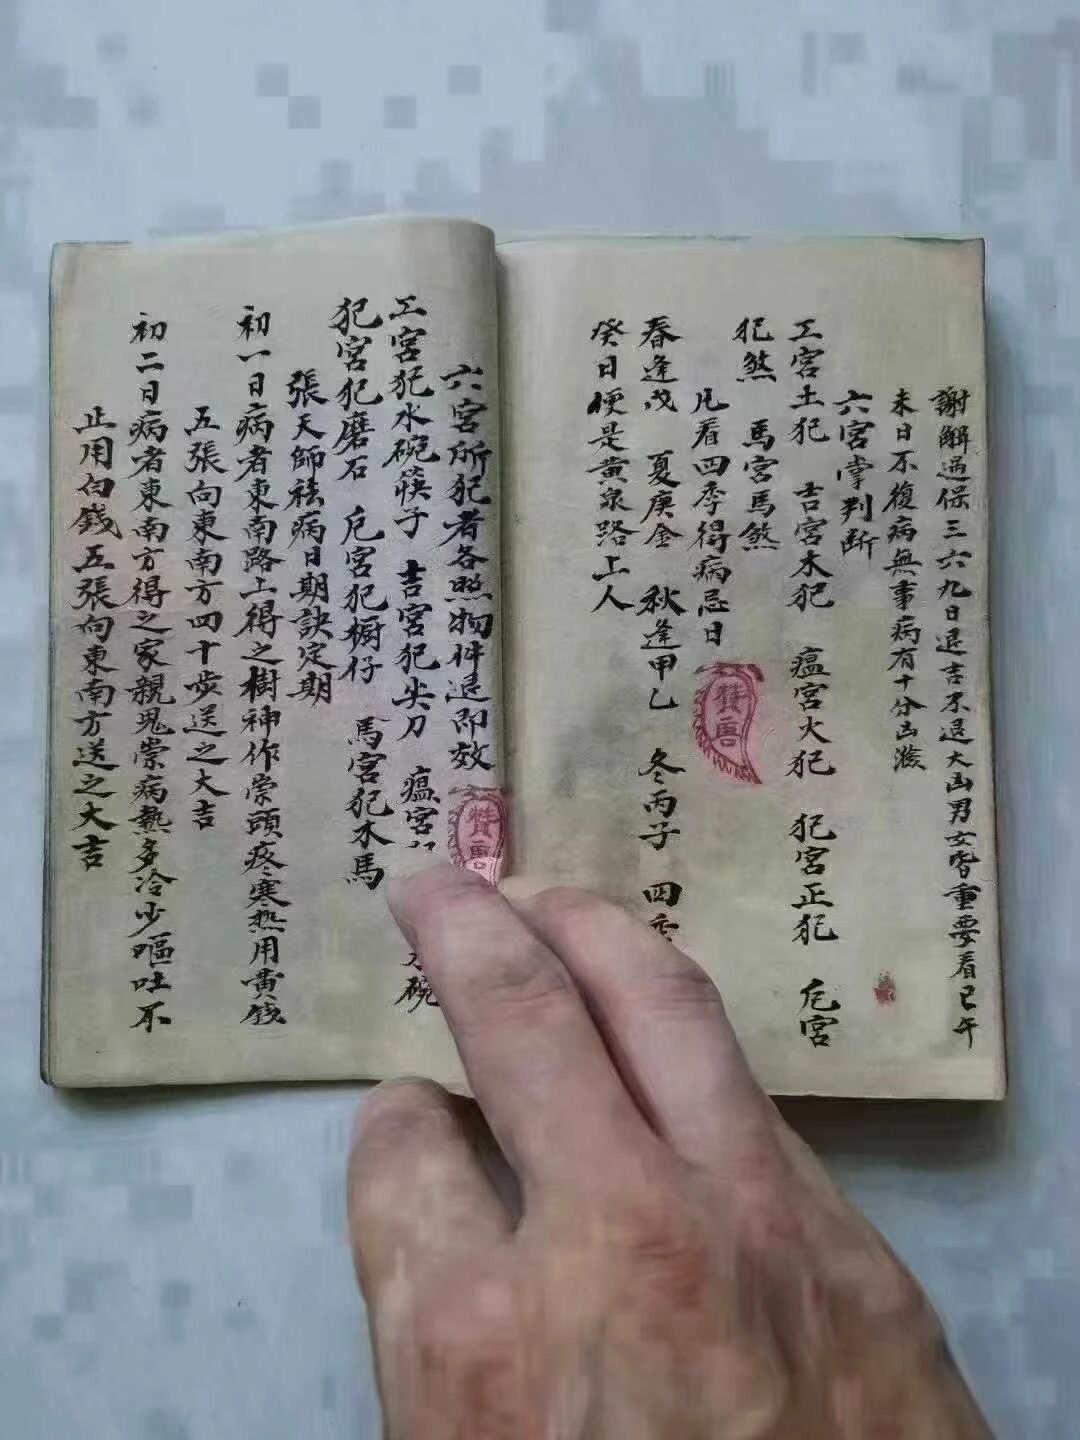 謝解過保三六九日退吉不退大凶男女皆重要看巳午
未日不復病無事病有十分凶險
六宮掌判断
工宮土犯 吉宮木犯 瘟宮火犯 犯宮正犯 厄宮
犯煞 馬宮馬煞
凡看四季得病忌日
春逢戊 夏庚金 秋逢甲乙 冬丙子 四季
癸日便是黄泉路上人
六宮所犯者各照物件退即效
工宮犯水碗筷子 吉宮犯尖刀 瘟宮 水碗
犯宮犯磨石 厄宮犯橱仔 馬宮犯木馬
張天師祛病日期訣定期
初一日病者東南路上得之樹神作祟頭疼寒热用黄錢
五張向東南方四十步送之大吉
初二日病者東南方得之家親鬼祟病熱多冷少嘔吐不
止用白錢五張向東南方送之大吉